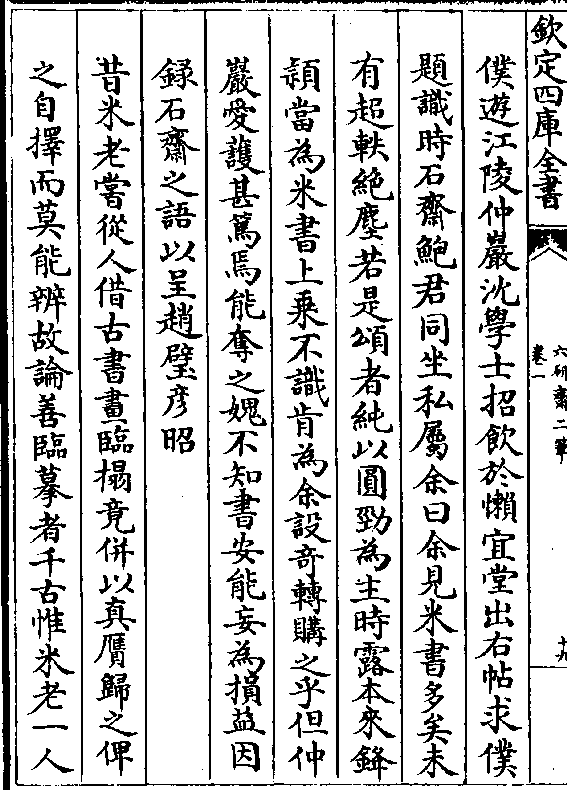 欽定四庫全書
卷一
六研齋二筆
十九
僕遊江陵仲巖沈學士招飲於懶宜堂出右帖求僕
題識時石齋鮑君同坐私屬余曰余見米書多矣未
有超軼絶塵若是頌者純以圓勁為主時露本來鋒
頴當為米書上乘不識肯為余設竒轉購之乎但仲
巖愛護甚篤焉能奪之媿不知書安能妄為損益因
録石齋之語以呈趙璧彦昭
昔米老嘗從人借古書畫臨搨竟併以真贋歸之俾
之自擇而莫能辨故論善臨摹者千古惟米老一人